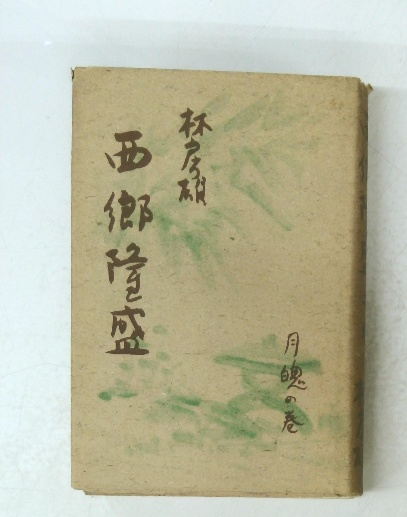 林房雄
西郷隆盛
月魄の巻